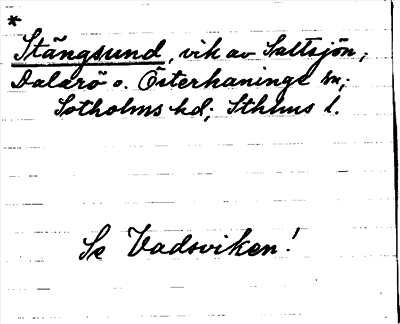 *
Stängsund, vik av Saltsjön;
Dalarö o. Österhaninge sn;
Sotholms hd; Sthlms l.
Se Vadsviken!